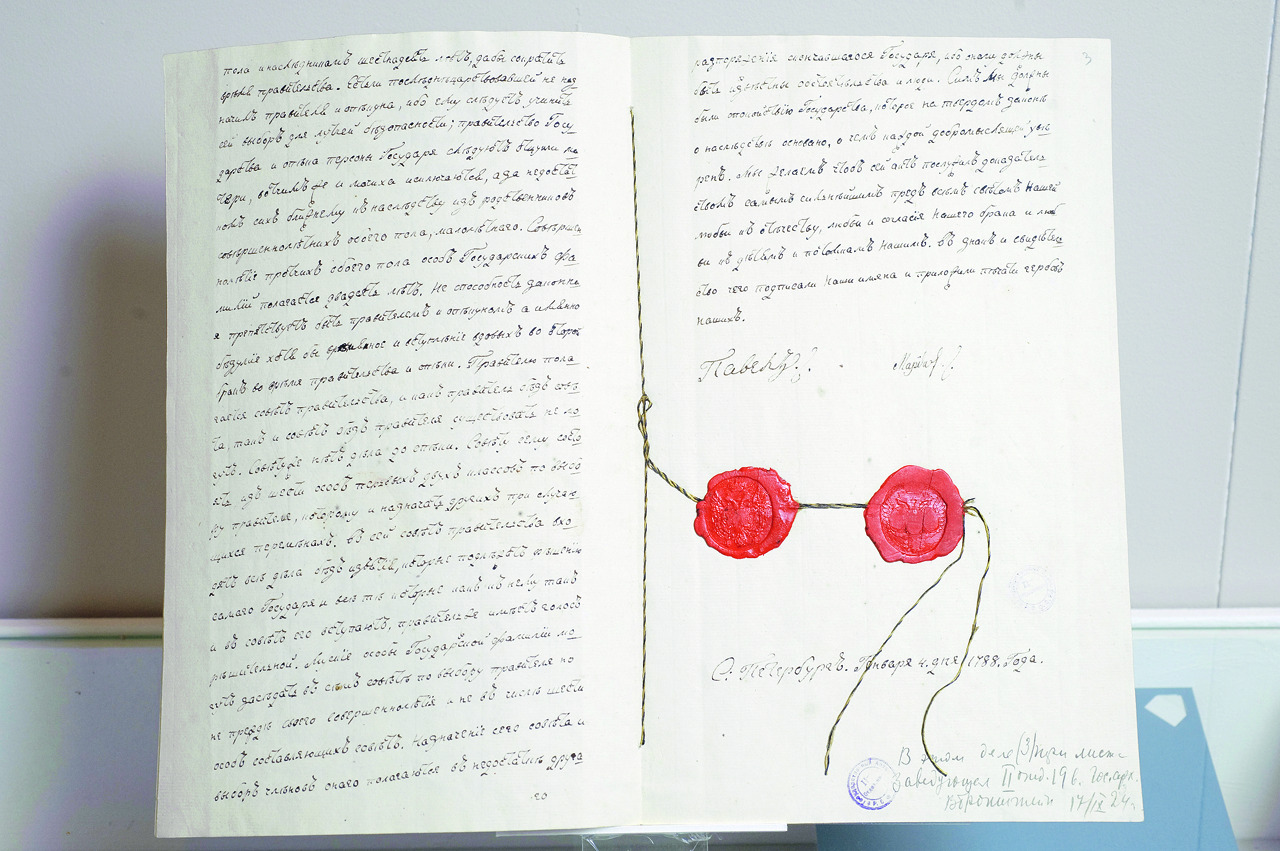 пола и наслѣдникамъ шестнадцать лѣтъ, дабы сократить
время правительства. Естьли послѣднецарствовавшей не наз
начилъ правителя и опѣкуна, ибо ему слѣдуетъ учинить
сей выборъ для лучшей безопасности; правительство Госу
дарства и опѣка персоны Государя слѣдуютъ отцу или ма
тери, вотчимъ же и мачиха исключаются, а за недостат
комъ сихъ ближнему къ наслѣдству изъ родственниковъ
совершеннолѣтнихъ обоего пола, малолѣтнаго. Совершен
нолѣтіе протчихъ обоего пола особъ Государскихъ фа
милій полагается двадцать лѣтъ. Не способность законна
я препятствуетъ быть правителемъ и опѣкуномъ а имянно
безуміе хотя бы временное и вступленіе вдовыхъ во второй
бракъ во время правительства и опѣки. Правителю пола
гается совѣтъ правительства, и какъ правитель безъ совѣ
та, такъ и совѣтъ безъ правителя существовать не мо
гутъ. Совѣту же нѣтъ дѣла до опѣки. Совѣту сему состо
ять изъ шести особъ первыхъ двухъ классовъ по выбо
ру правителя, которому и назначать другихъ при случаю
щихся перемѣнахъ. Въ сей совѣтъ правительства вхо
дятъ всѣ дѣла безъ изъятія, которые подлѣжатъ рѣшенію
самого Государя и всѣ тѣ которые какъ къ нему такъ
и въ совѣтъ его вступаютъ, правитель же имѣетъ голосъ
рѣшительной. Мужскіе особы Государской фамиліи мо
гутъ засѣдать въ семъ совѣтѣ по выбору правителя но
не прежде своего совершеннолѣтія и не въ числѣ шести
особъ составляющихъ совѣтъ. Назначеніе сего совѣта и
выборъ членовъ онаго полагаются въ недостаткѣ друга
го
разпоряженія скончавшагося Государя, ибо оному должны
быть извѣстны обстоятельства и люди. Симъ мы должны
были спокойствію Государства, которое на твердомъ законѣ
о наслѣдствѣ основано, о чемъ каждой добромыслящей увѣ
ренъ. Мы желаемъ чтобъ сей актъ послужилъ доказатель
ствомъ самымъ сильнѣйшимъ предъ всемъ свѣтомъ Нашей
любви къ отечеству, любви и согласія Нашего брака и люб
ви къ дѣтямъ и потомкамъ Нашимъ. Въ знакъ и свидѣтель
ство чего подписали Наши имяна и приложили печати гербовъ
Нашихъ.
Павелъ.
Марія.
С. Петербургъ. Генваря 4. дня 1788. Года.
3
В этом деле (3) три листа
Заведующей II отд.
17/IX 24 г.